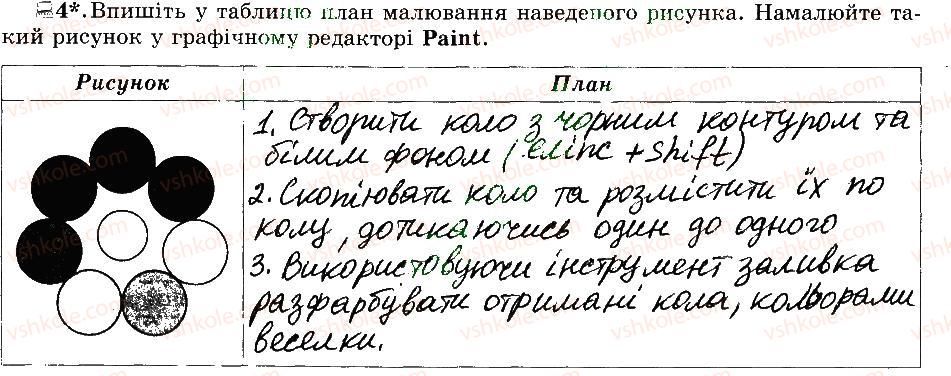 4*. Впишіть у таблицю план малювання наведеного рисунка. Намалюйте та-
кий рисунок у графічному редакторі Paint.
Рисунок
План
1. Створити коло з чорним контуром та
білим фоном (еліпс + Shift)
2. Скопіювати коло та розмістити їх по
колу, дотикаючись один до одного
3. Використовуючи інструмент заливка
разфарбувати отримані кола, кольорами
веселки.